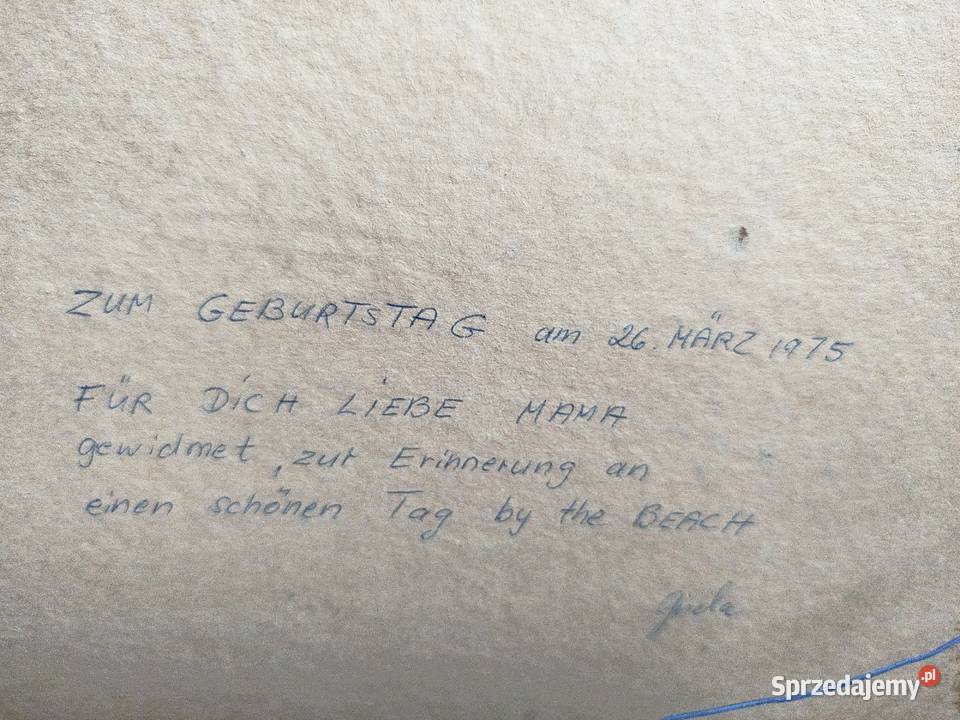 ZUM GEBURTSTAG am 26. MÄRZ 1975
FÜR DICH LIEBE MAMA
gewidmet, zur Erinnerung an
einen schönen Tag by the BEACH
Sprzedajemy.pl